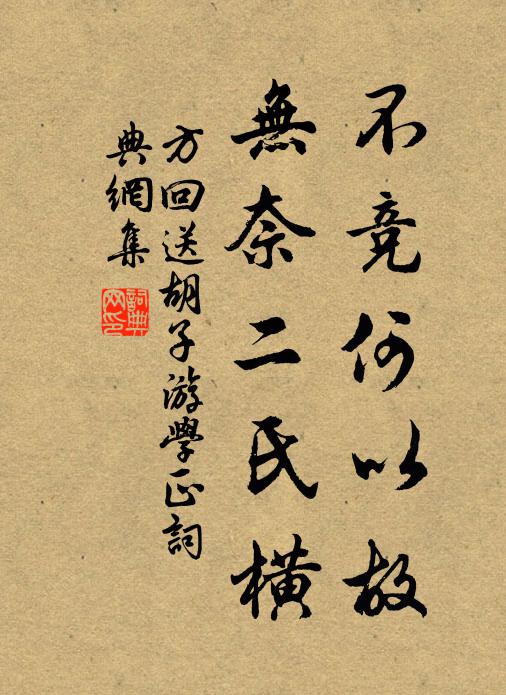 不竞何以故
無奈二氏橫
方回送胡子游學正詞
典網集
詞典网印